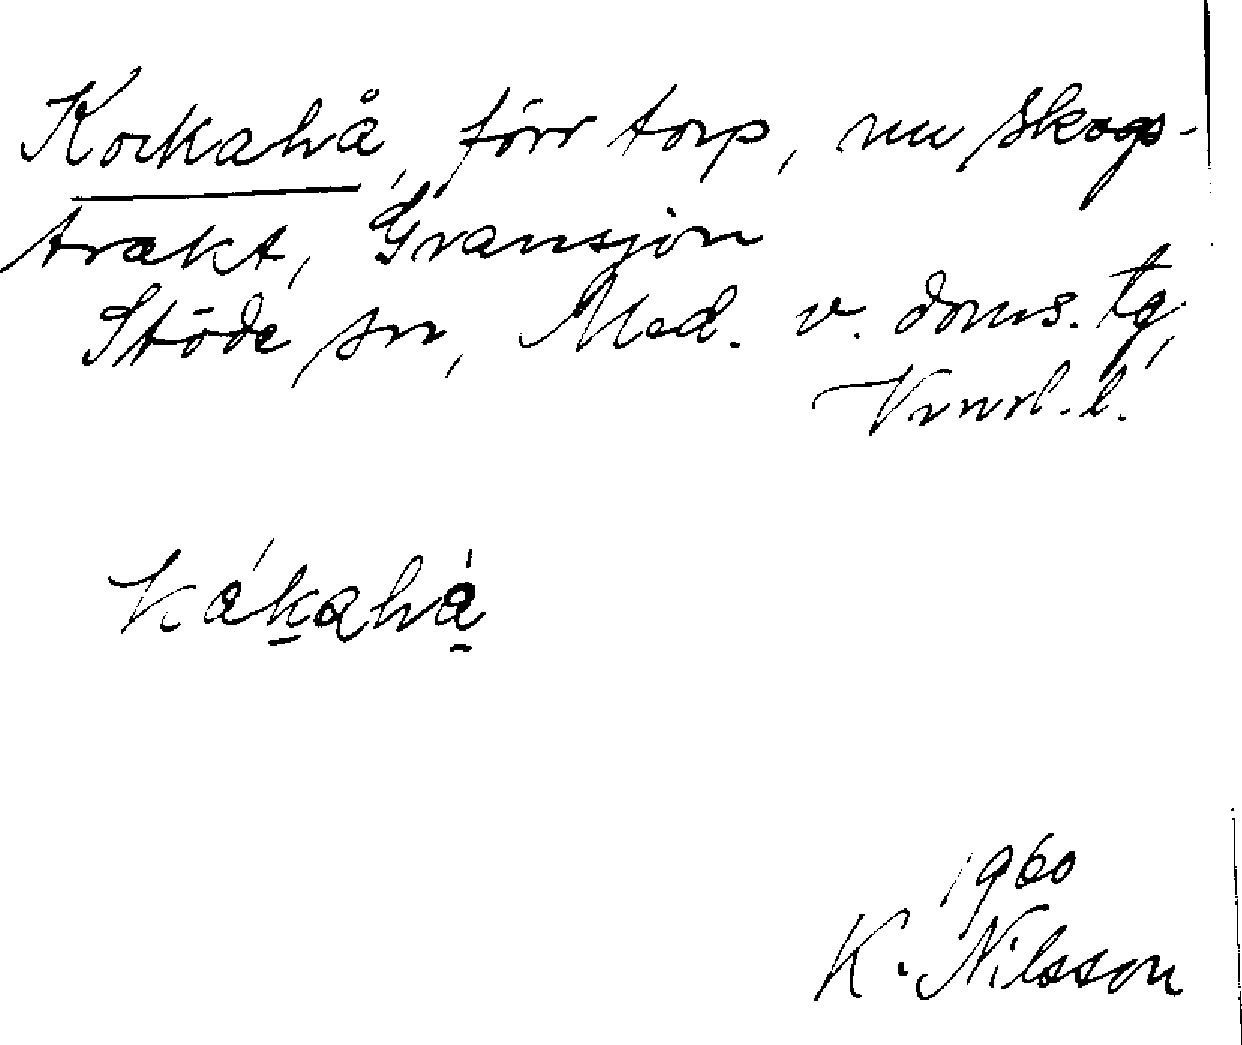 Kockahå, förr torp, nu skogs-
trakt, Gransjön
Stöde sn, Med. v. doms. tg,
Vnrl. l.
kákahá
1960
K. Nilsson